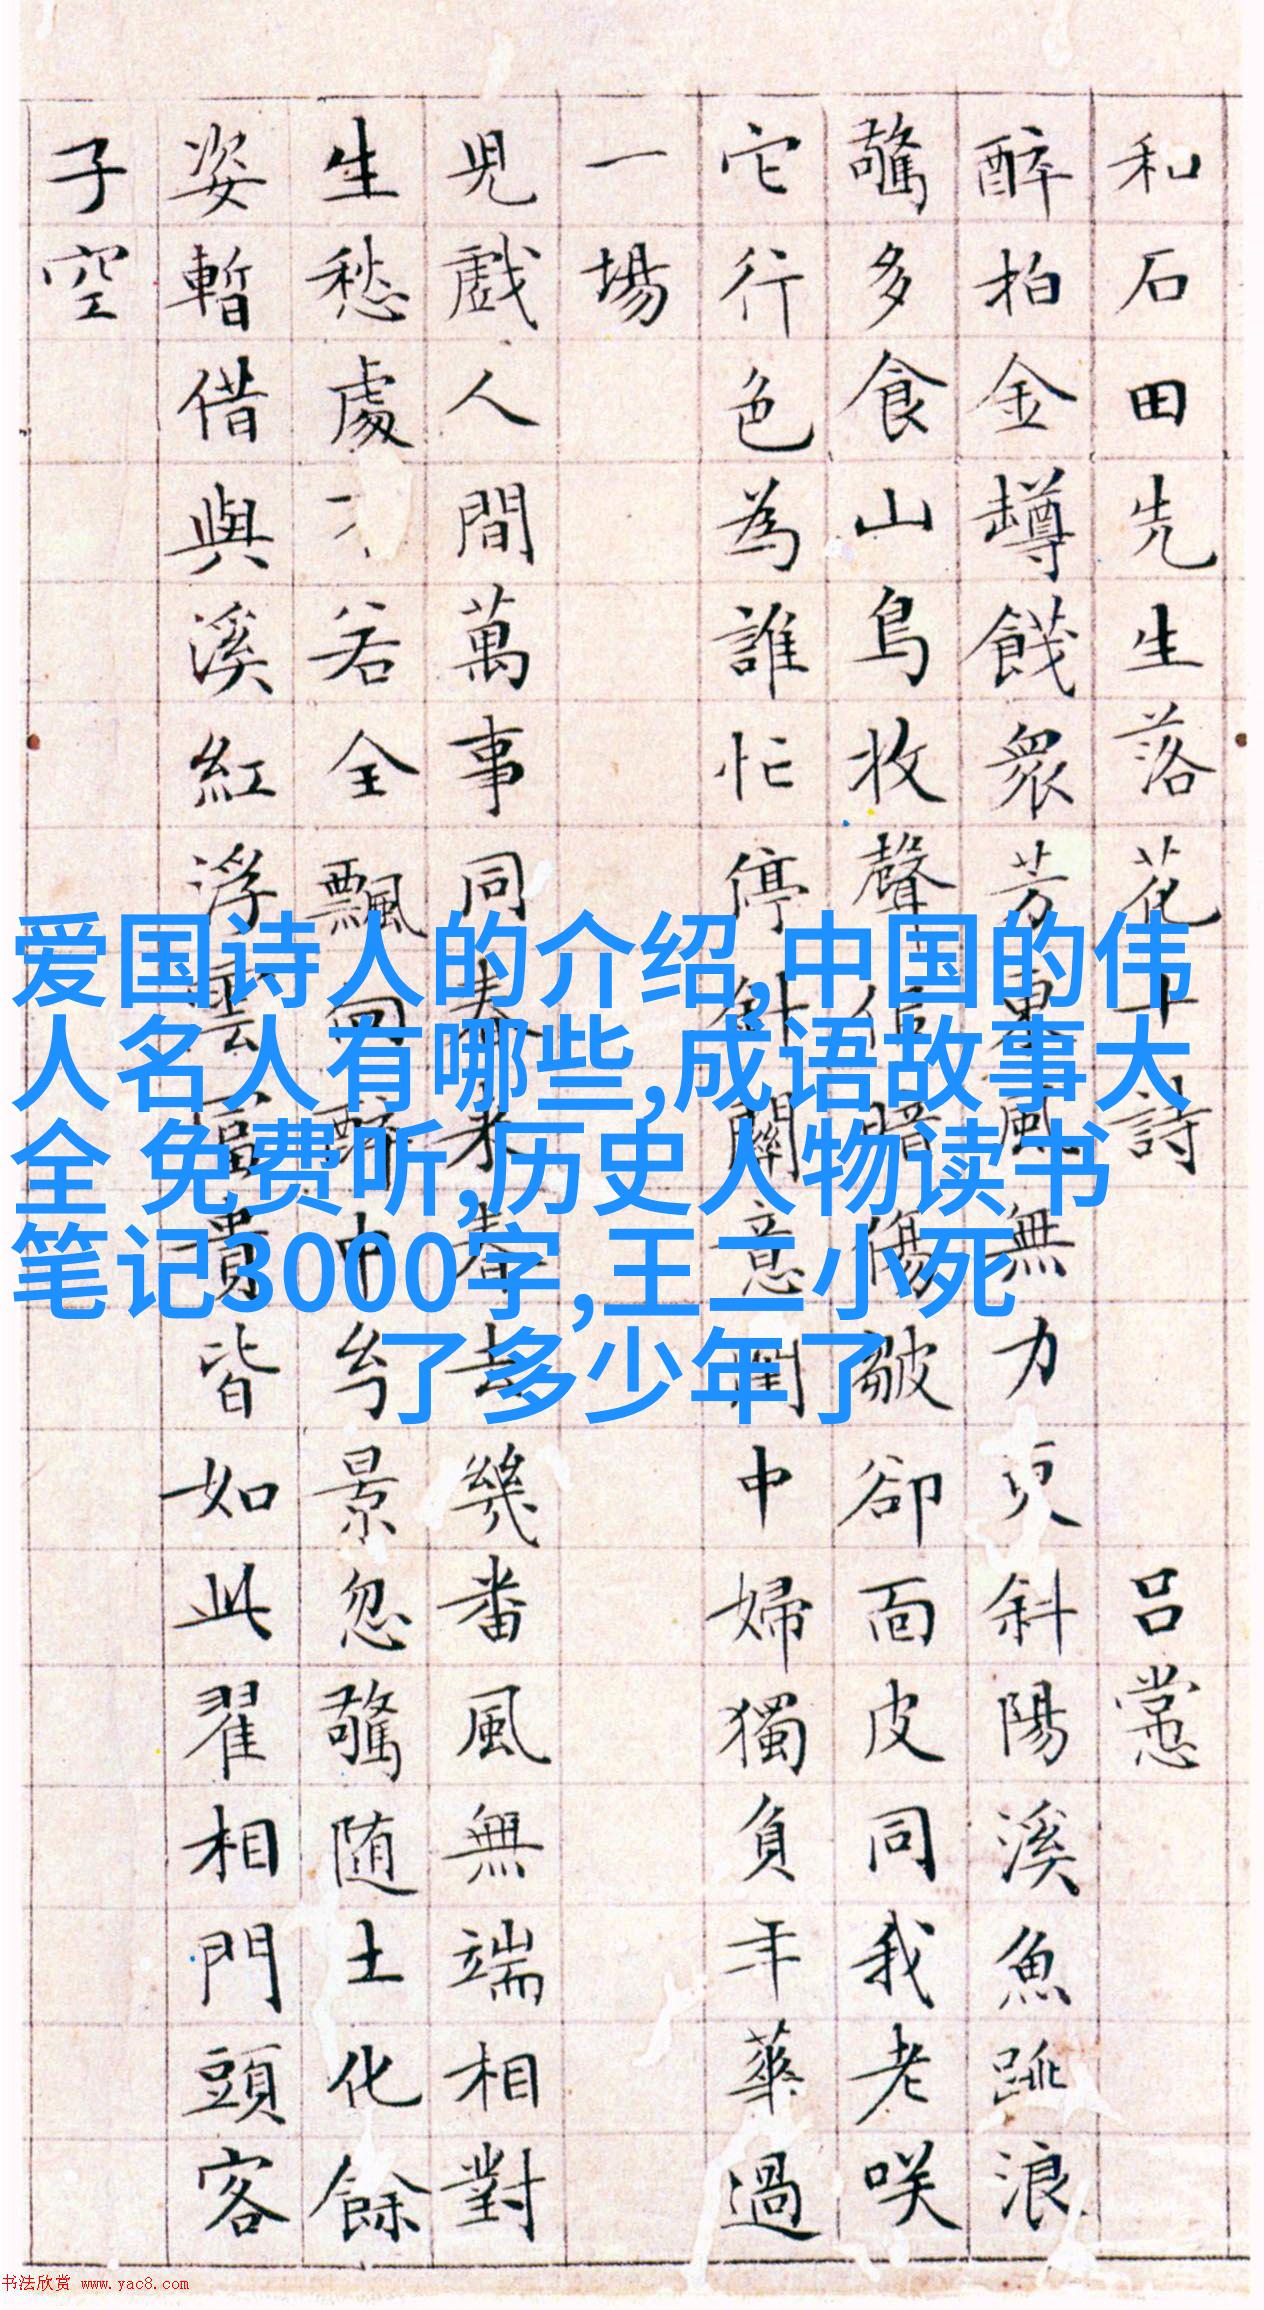 和石田先生落花十詩 呂㦂
醉拍金罇餞衆芳暴風無力更斜陽溪魚跳浪
驚多食山鳥收聲借暗傷皺卻面皮同我老咲
它行色為誰忙停針關意閨中婦獨負年華過
一場
兒戲人間萬事同春來春去幾番風無端相對
生愁處若全飄回醉中兮景忽驚随土化餘
姿暫借與溪紅浮雲富貴皆如此翟相門頭客
子空
爱国诗人的介绍,中国的伟
人名人有哪些,成语故事大
全 免费听,历史人物读书
笔记3000字,王二小死
了多少年了
书法欣赏 www.yac8.com